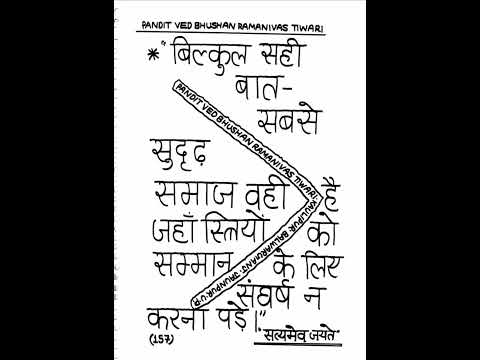 PANDIT VED BHUSHAN RAMANIVAS TIWARI
* "बिल्कुल सही
बात-
सबसे
सुदृढ़
समाज वही है
जहाँ स्त्रियों को
सम्मान के लिए
संघर्ष न
करना पड़े।"
(157)
सत्यमेव जयते
PANDIT VED BHUSHAN RAMANIVAS TIWARI.